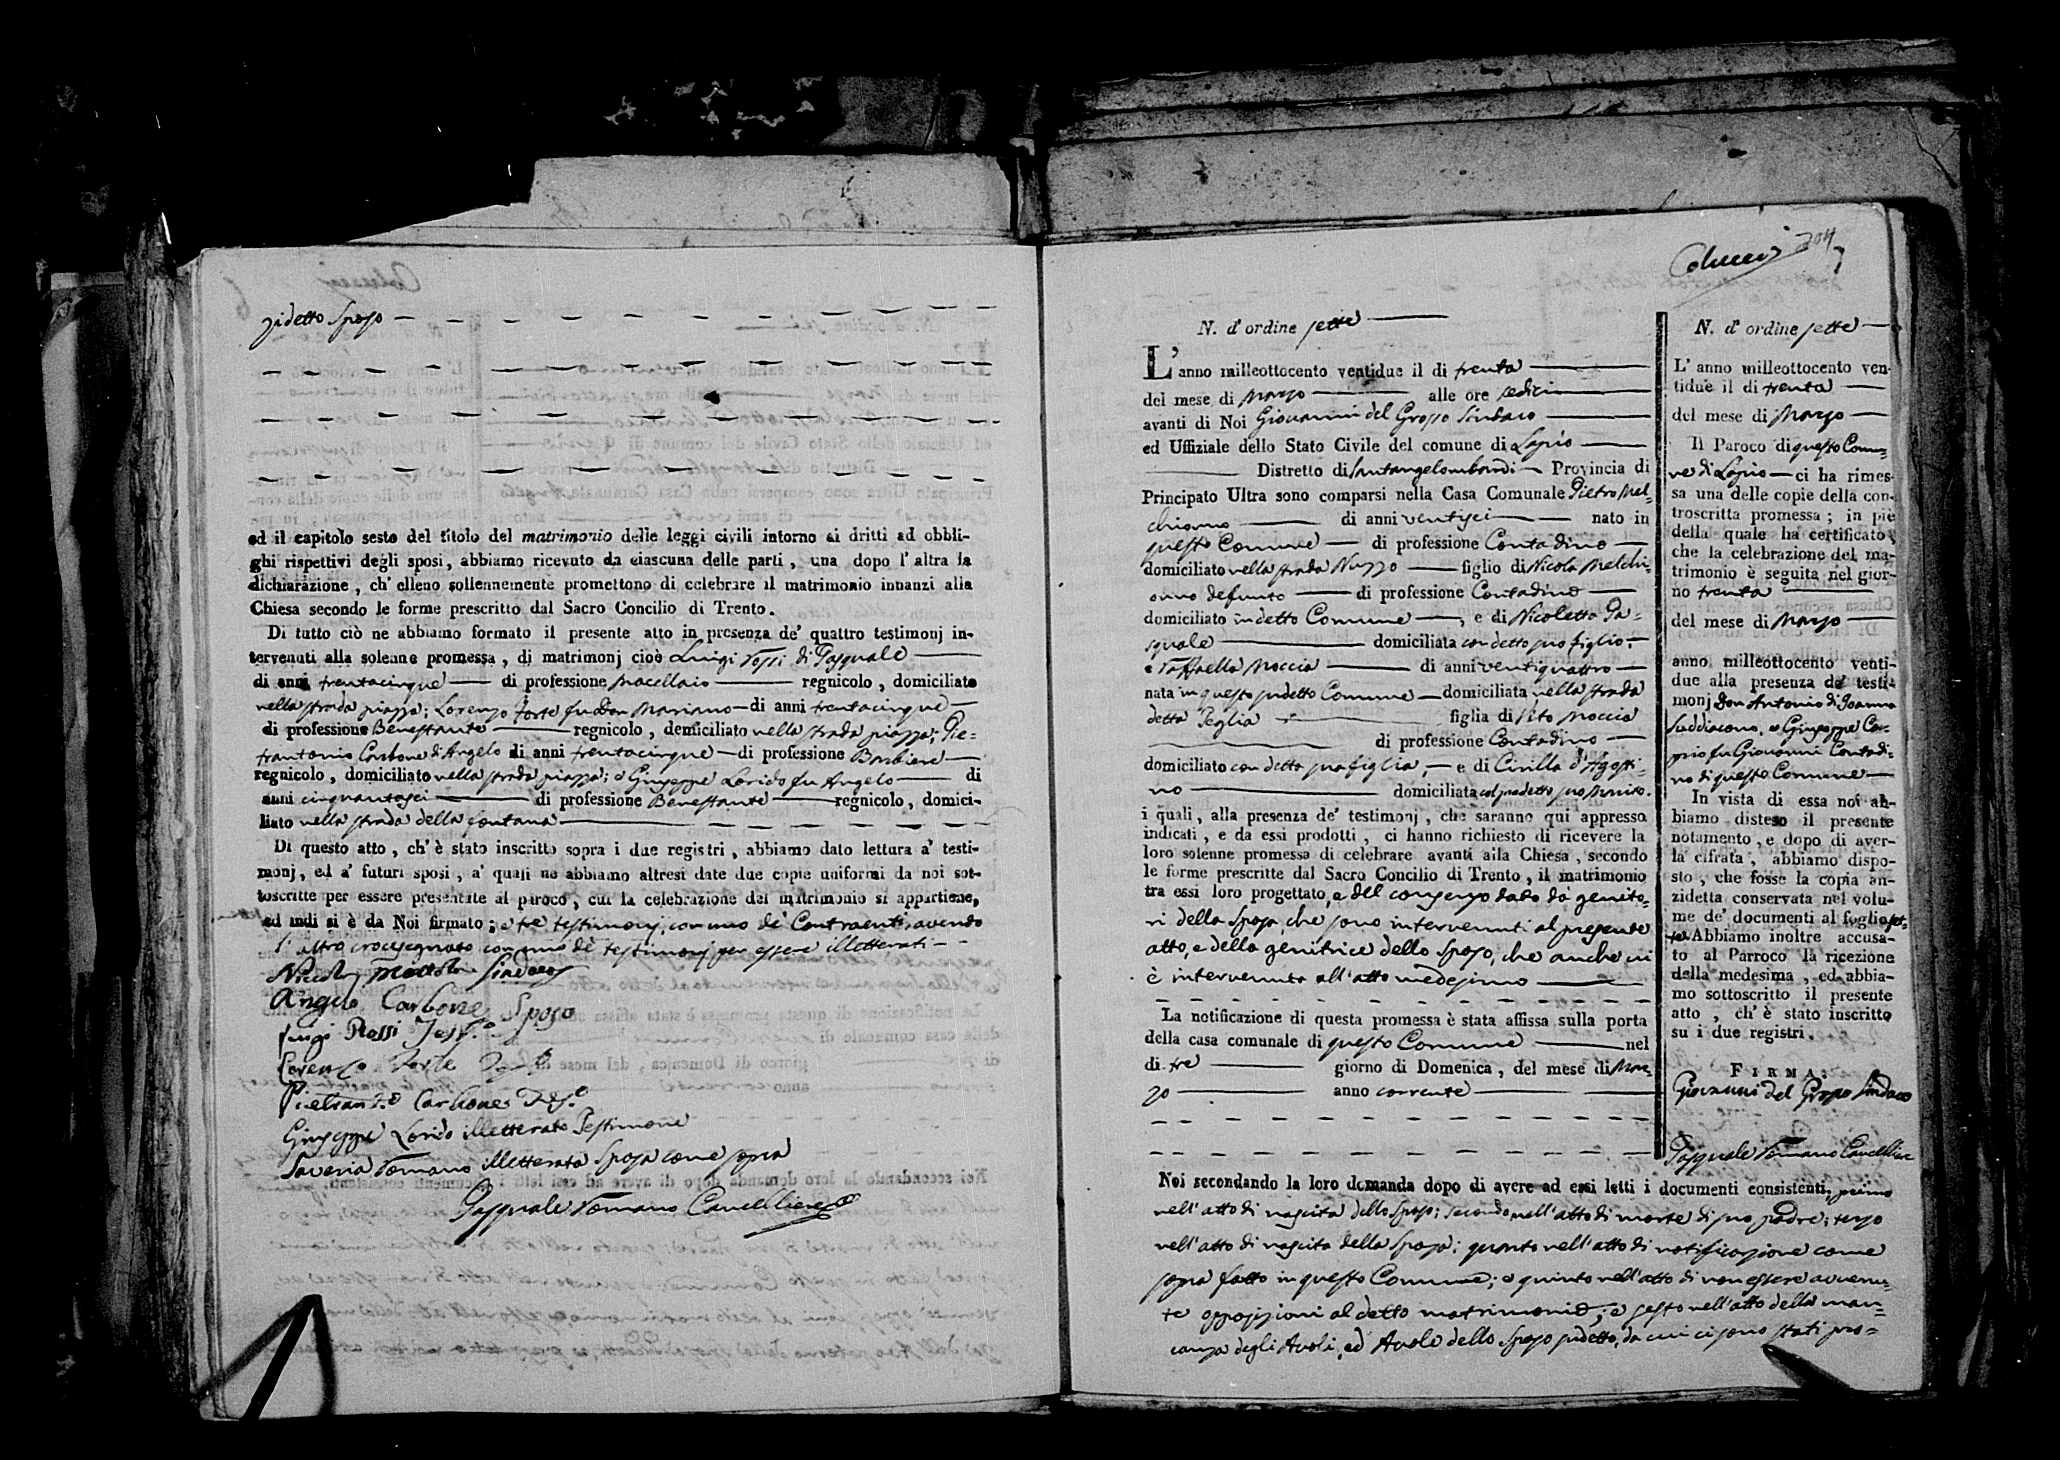 zidetto Sposo
ed il capitolo sesto del titolo del matrimonio delle leggi civili intorno ai dritti ad obbli-
ghi rispettivi degli sposi, abbiamo ricevuto da ciascuna delle parti, una dopo l'altra la
dichiarazione, ch'elleno sollennemente promettono di celebrare il matrimonio innanzi alla
Chiesa secondo le forme prescritto dal Sacro Concilio di Trento.
Di tutto ciò ne abbiamo formato il presente atto in presenza de' quattro testimonj in-
tervenuti alla solenne promessa, di matrimonj cioè Luigi Rossi di Pasquale
di anni trentacinque di professione Macellaio regnicolo, domiciliato
nella strada piazza; Lorenzo Forte fu Don Mariano di anni trentacinque
di professione Benestante regnicolo, domiciliato nella strada piazza; Pie=
trantonio Carbone d'Angelo di anni trentacinque di professione Barbiere
regnicolo, domiciliato nella strada piazza; e Giuseppe Lorido fu Angelo di
anni cinquantasei di professione Benestante regnicolo, domici-
liato nella strada della fontana
Di questo atto, ch'è stato inscritto sopra i due registri, abbiamo dato lettura a' testi-
monj, ed a' futuri sposi, a' quali ne abbiamo altresì date due copie uniformi da noi sot-
toscritte per essere presentate al paroco, cui la celebrazione del matrimonio si appartiene,
ed indi si è da Noi firmato; e tre testimonj, con uno de' Contraenti, avendo
l'altro crocesegnato con uno de' testimonj per essere illetterati
Sindaco
Angelo Carbone Sposo
Luigi Rossi Test.º
Lorenzo Forte
Pietrant.º Carbone Tes.º
Giuseppe Lorido illetterato Testimone
Saveria Romano illetterata Sposa come sopra
Pasquale Romano Cancelliere
Colucci 204
7
N. d'ordine sette
L'anno milleottocento ventidue il dì trenta
del mese di Marzo alle ore sedici
avanti di Noi Giovanni del Grosso Sindaco
ed Uffiziale dello Stato Civile del comune di Lapio
Distretto di Santangelombardi Provincia di
Principato Ultra sono comparsi nella Casa Comunale Pietro Mel=
chionno di anni ventisei nato in
questo Comune di professione Contadino
domiciliato nella strada Nuzzo figlio di Nicola Melchi=
onno defunto di professione Contadino
domiciliato in detto Comune, e di Nicoletta Pa=
squale domiciliata con detto suo figlio.
e Raffaella Moccia di anni ventiquattro
nata in questo sudetto Comune domiciliata nella strada
detta Peglia figlia di Vito Moccia
di professione Contadino
domiciliato con detta sua figlia, e di Cirilla d'Agosti=
no domiciliata col predetto suo marito.
i quali, alla presenza de' testimonj, che saranno qui appresso
indicati, e da essi prodotti, ci hanno richiesto di ricevere la
loro solenne promessa di celebrare avanti alla Chiesa, secondo
le forme prescritte dal Sacro Concilio di Trento, il matrimonio
tra essi loro progettato, e del consenso dato da' genito=
ri della Sposa, che sono intervenuti al presente
atto, e della genitrice dello Sposo, che anche vi
è intervenuta all'atto medesimo
La notificazione di questa promessa è stata affissa sulla porta
della casa comunale di questo Comune nel
di tre giorno di Domenica, del mese di Mar=
zo anno corrente
Noi secondando la loro domanda dopo di avere ad essi letti i documenti consistenti, primo
nell'atto di nascita dello Sposo; Secondo, nell'atto di morte di suo padre; terzo
nell'atto di nascita della Sposa; quarto nell'atto di notificazione come
sopra fatto in questo Comune; e quinto nell'atto di non essere avvenu=
te opposizioni al detto matrimonio; e sesto nell'atto della man=
canza degli Avoli, ed Avole dello Sposo sudetto, da cui ci sono stati pro=
N. d'ordine sette
L'anno milleottocento ven-
tidue il dì trenta
del mese di Marzo
Il Paroco di questo Comu=
ne di Lapio ci ha rimes-
sa una delle copie della con-
troscritta promessa; in piè
della quale ha certificato,
che la celebrazione del ma-
trimonio è seguita nel gior-
no trenta
del mese di Marzo
anno milleottocento venti-
due alla presenza de' testi-
monj Don Antonio di Joanna
Suddiacono, e Giuseppe Car=
prio fu Giovanni Contadi=
no di questo Comune
In vista di essa noi ab-
biamo disteso il presente
notamento, e dopo di aver-
la cifrata, abbiamo dispo-
sto, che fosse la copia an-
zidetta conservata nel volu-
me de' documenti al foglio set=
te Abbiamo inoltre accusa-
to al Parroco la ricezione
della medesima, ed abbia-
mo sottoscritto il presente
atto, ch'è stato inscritto
su i due registri.
FIRMA:
Giovanni del Grosso Sindaco
Pasquale Romano Cancellier